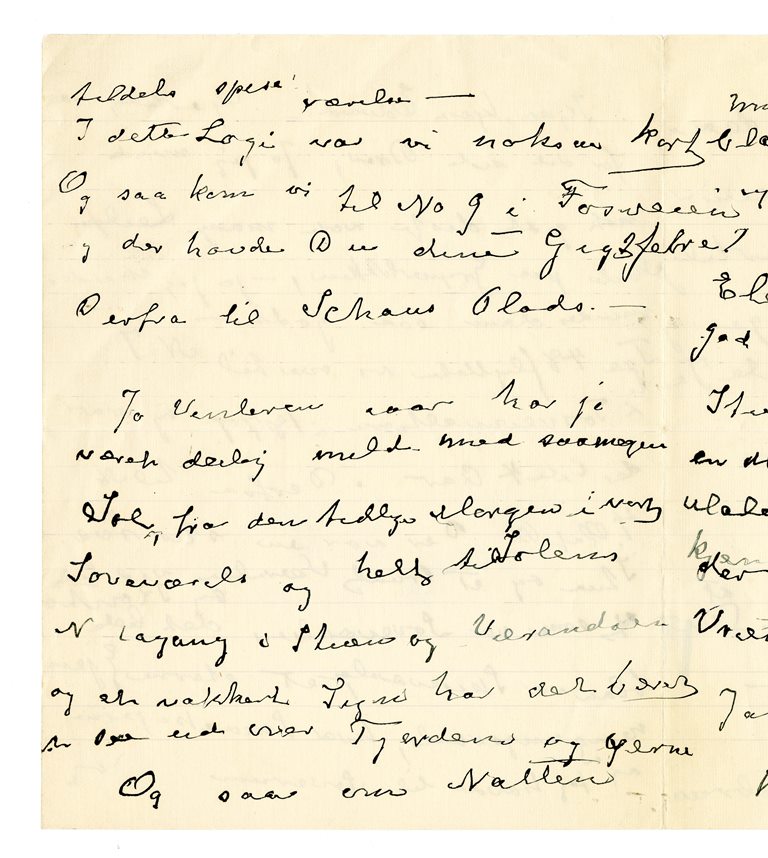 tildels spise værelse —
I dette Logi var vi noksaa kort
Og saa kom vi til No 9 i Fosveien
og der havde Du dine Gigtfebre?
Derfra til Schaus Plads. —
Ja Vinteren i aar har jo
været deilig mild med saamegen
Sol, fra den tidlige Morgen i vort
Soveværelse og helt til Solens
Nedgang i Stuen og Verandaen
og et vakkert Syn har det været
at se ud over Fjorden og Øerne
Og saa om Natten
gad
en
der